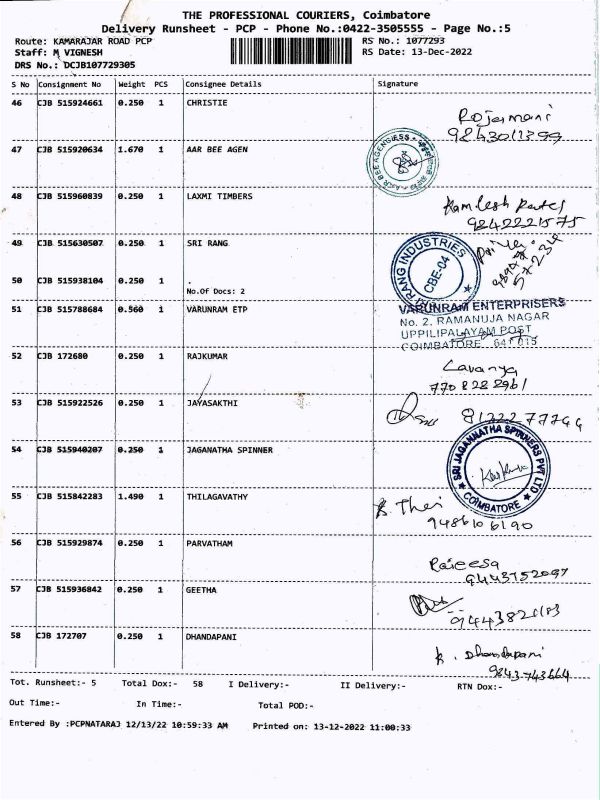 THE PROFESSIONAL COURIERS, Coimbatore
Delivery Runsheet - PCP - Phone No.:0422-3505555 - Page No.:5
Route: KAMARAJAR ROAD PCP RS No.: 1077293
Staff: M VIGNESH RS Date: 13-Dec-2022
DRS No.: DCJB107729305
S No Consignment No Weight PCS Consignee Details Signature
46 CJB 515924661 0.250 1 CHRISTIE
Rojamani
9843011399
47 CJB 515920634 1.670 1 AAR BEE AGEN
48 CJB 515960839 0.250 1 LAXMI TIMBERS
Kamlesh Patel
9842221575
49 CJB 515630507 0.250 1 SRI RANG
RANG INDUSTRIES
CBE-04
50 CJB 515938104 0.250 1 .
No.Of Docs: 2
51 CJB 515788684 0.560 1 VARUNRAM ETP
VARUNRAM ENTERPRISERS
No. 2, RAMANUJA NAGAR
UPPILIPALAYAM POST
COIMBATORE 641 015
52 CJB 172680 0.250 1 RAJKUMAR
Lavanya
770 828 2961
53 CJB 515922526 0.250 1 JAYASAKTHI
54 CJB 515940207 0.250 1 JAGANATHA SPINNER
SRI JAGANNATHA SPINNERS PVT LTD
COIMBATORE
55 CJB 515842283 1.490 1 THILAGAVATHY
948610 6190
56 CJB 515929874 0.250 1 PARVATHAM
Raieesa
9443152097
57 CJB 515936842 0.250 1 GEETHA
58 CJB 172707 0.250 1 DHANDAPANI
k. Dhandapani
9843743664
Tot. Runsheet:- 5 Total Dox:- 58 I Delivery:- II Delivery:- RTN Dox:-
Out Time:- In Time:- Total POD:-
Entered By :PCPNATARAJ 12/13/22 10:59:33 AM Printed on: 13-12-2022 11:00:33